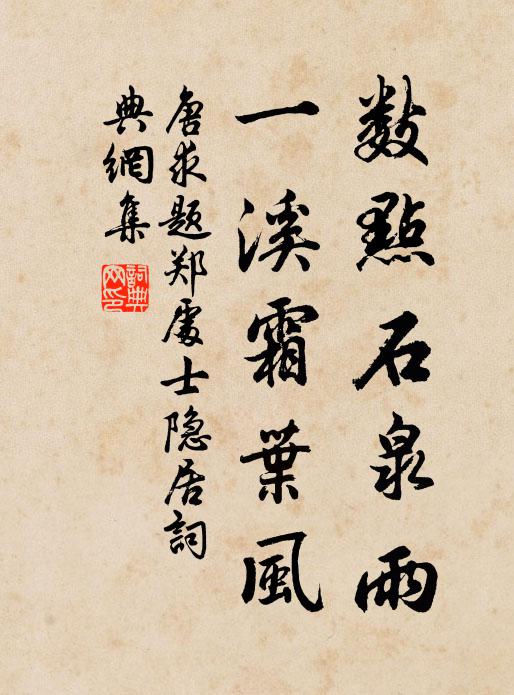 數點石泉雨
一溪霜葉風
唐求題郑處士隐居詞
典網集
詞典
網印